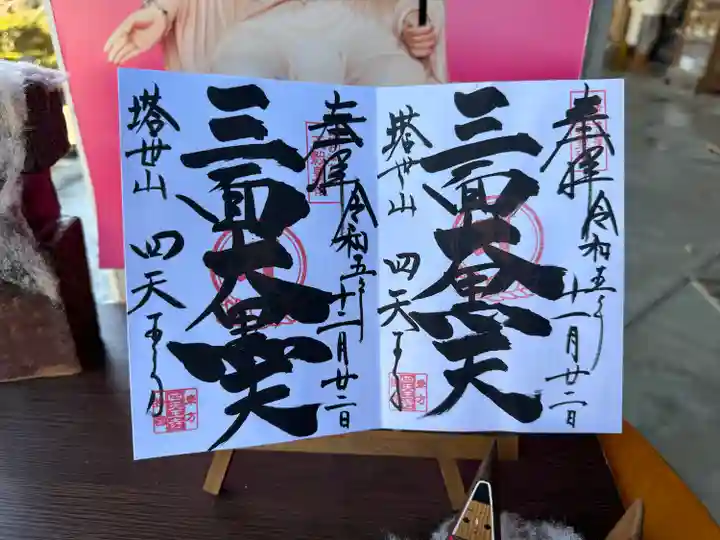 奉拝 令和五年十一月廿二日
三面大黒天
塔世山 四天王寺
奉拝 令和五年十二月廿二日
三面大黒天
塔世山 四天王寺